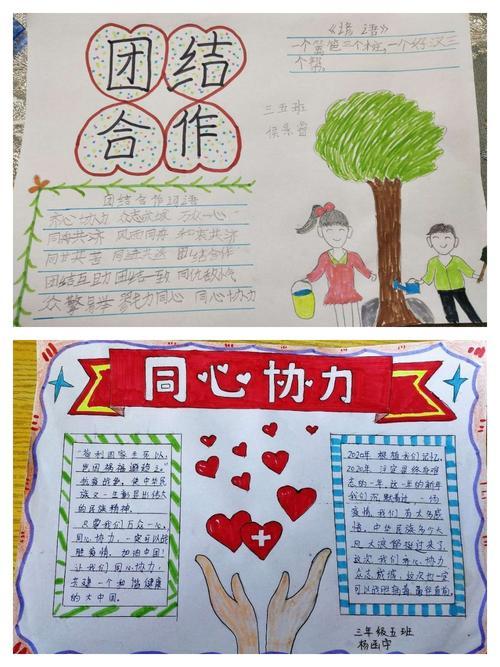 团结
合作
《谚语》
一个篱笆三个桩,一个好汉三
个帮。
三五班
团结合作词语
齐心协力 众志成城 万众一心
同舟共济 风雨同舟 和衷共济
同甘共苦 团结合作
团结互助 团结一致 同仇敌忾
众擎易举 戮力同心 同心协力
同心协力
"苟利国家生死以,
岂因祸福避趋之。"
抗疫战争,使中华民
族又一出伟大
的民族精神。
只要我们万众一心,
同心协力,一定可以战
胜疫情。加油中国!
让我们同心协力,
共建一个和谐健康
的大中国。
2020年 根植我们记忆。
2020年 注定是终身难
忘的一年,这一年的新年
我们沉默着过,一场
疫情,我们有太多感
悟,中华民族多少大
风大浪都挺过来了,
这次,我们齐心协力
众志成城,这次也一定
可以战胜病毒,
三年级五班